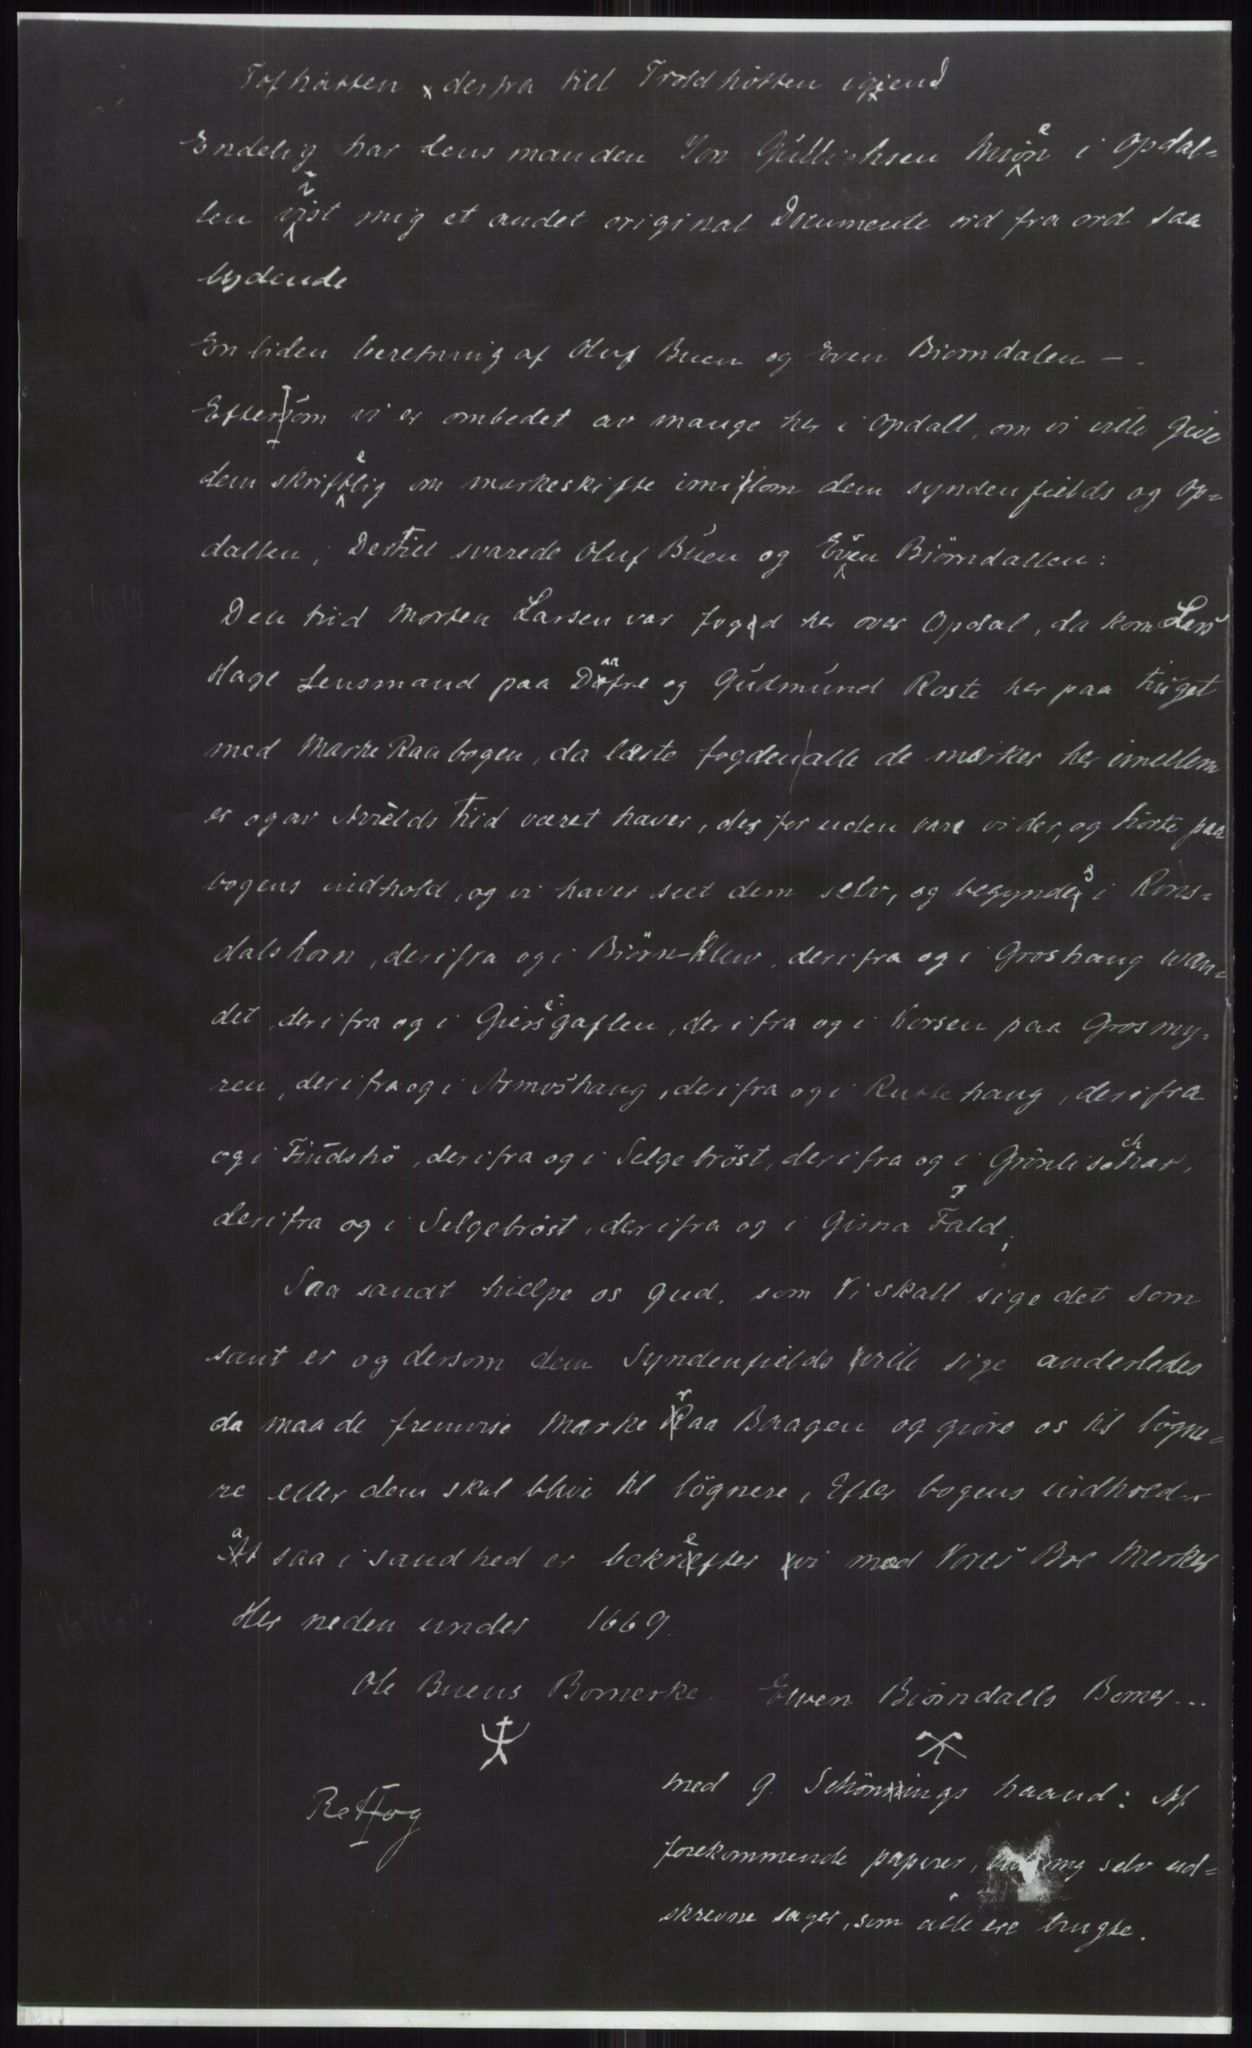 Tofhatten, derfra till Troldhötten igiend
Endelig har lensmanden Jon Gullichsen Mione i Opdal-
len viist mig et andet original Documente ord fra ord saa
lydende
En liden beretning af Oluf Buen og Even Biorndalen —.
Eftersom vi er ombedet av mange her i Opdall, om vi ville give
dem skriftelig om markeskifte imillom dem syndenfields og Op-
dallen; Dertil svarede Oluf Buen og Even Biörndallen:
Den tiid Morten Larsen var fogd her over Opdal, da kom Lars
Hage Lensmand paa Daafre og Gudmund Roste her paa tinget
med Marke Raabogen, da læste fogden alle de mærker her imellem
er og av Arrilds tiid været haver, des for uden vare vi der, og hörte paa
bogens indhold, og vi haver seet dem selv, og begyndes i Roms-
dalshorn, derifra og i Biörn-Klew, derifra og i Groshaug wan-
det, derifra og i Giersgaflen, derifra og i Korsen paa Grosmy-
ren, derifra og i Armoshaug, derifra og i Ruttehaug, derifra
og i Findshö, derifra og i Selgebröst, derifra og i Grönlischar,
derifra og i Selgebröst, derifra og i Gisna Fald;
Saa sandt hielpe os gud, som Vi skall sige det som
sant er og dersom dem Syndenfields ville sige anderledes
da maa de fremvise Marke raa Baagen og giöre os til lögne-
re eller dem skal blive til lögnere, Efter bogens indhold
at saa i sandhed er bekrefter vi med Vores Boe Merker
Her neden under 1669.
Ole Buens Bomerke. Ewen Biörndalls Bomer...
med G. Schönings haand: Af
Rettog
forekommende papirer, mig selv ud-
skrevne sager, som alle ere brugte.